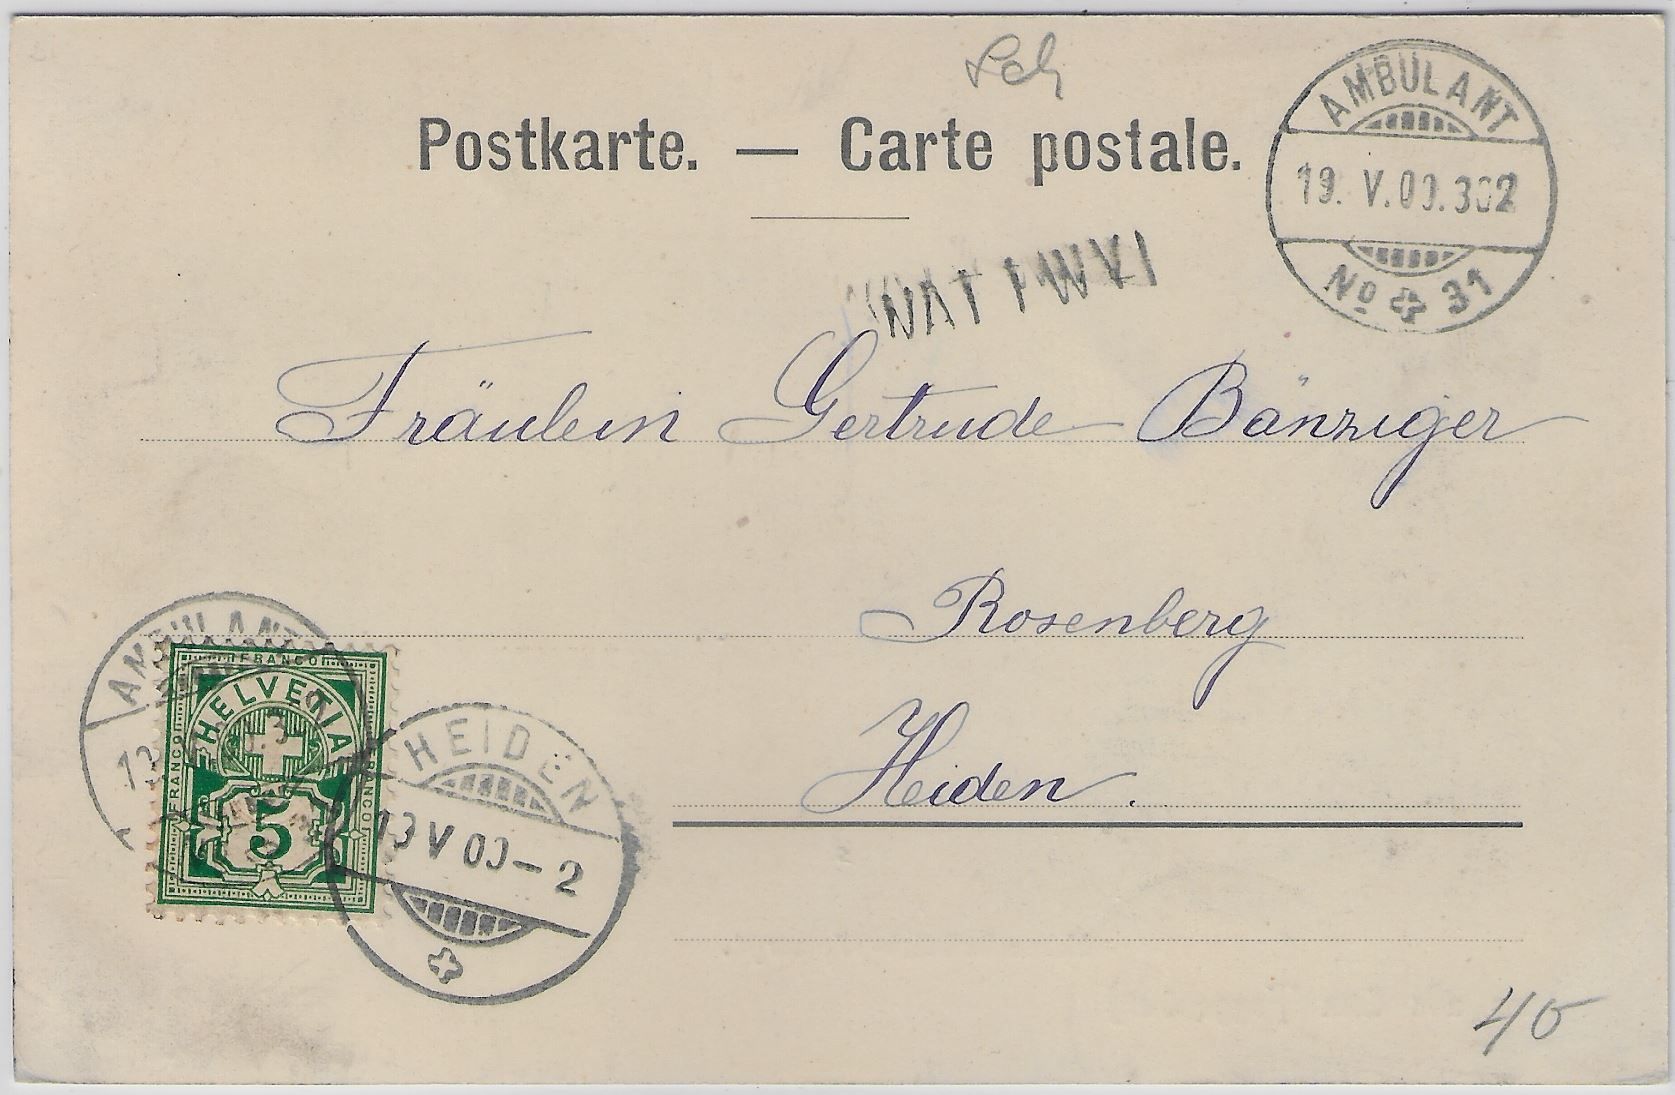 Sch
Postkarte. — Carte postale.
AMBULANT
19. V. 00. 302
No 31
Fräulein Gertrude Bänziger
Rosenberg
Heiden.
AMBULANT
FRANCO
HELVETIA
FRANCO
FRANCO
5
HEIDEN
19 V 00 – 2
40